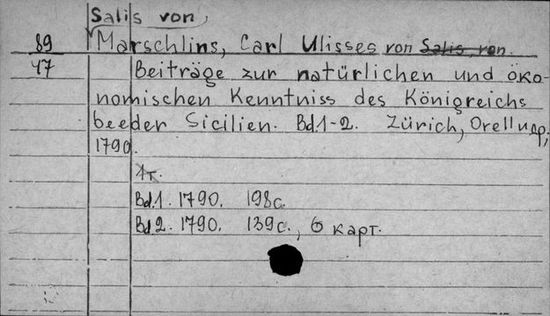 Salis von,
89 Marschlins, Carl Ulisses von Salis, von.
47 Beiträge zur natürlichen und öko-
nomischen Kenntniss des Königreichs
beeder Sicilien. Bd.1-2. Zürich, Orell u.
1790.
Bd.1. 1790. 198c.
Bd.2. 1790. 139c., 6 карт.